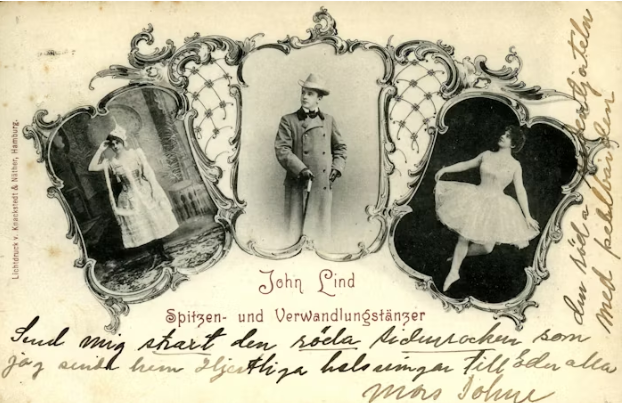 Lichtdruck v. Knackstedt & Näther, Hamburg.
John Lind
Spitzen- und Verwandlungstänzer
Send mig strart den röda sidenrocken som
jag sände hem Hjertliga helsningar till Eder alla
den röda
med pelsbården